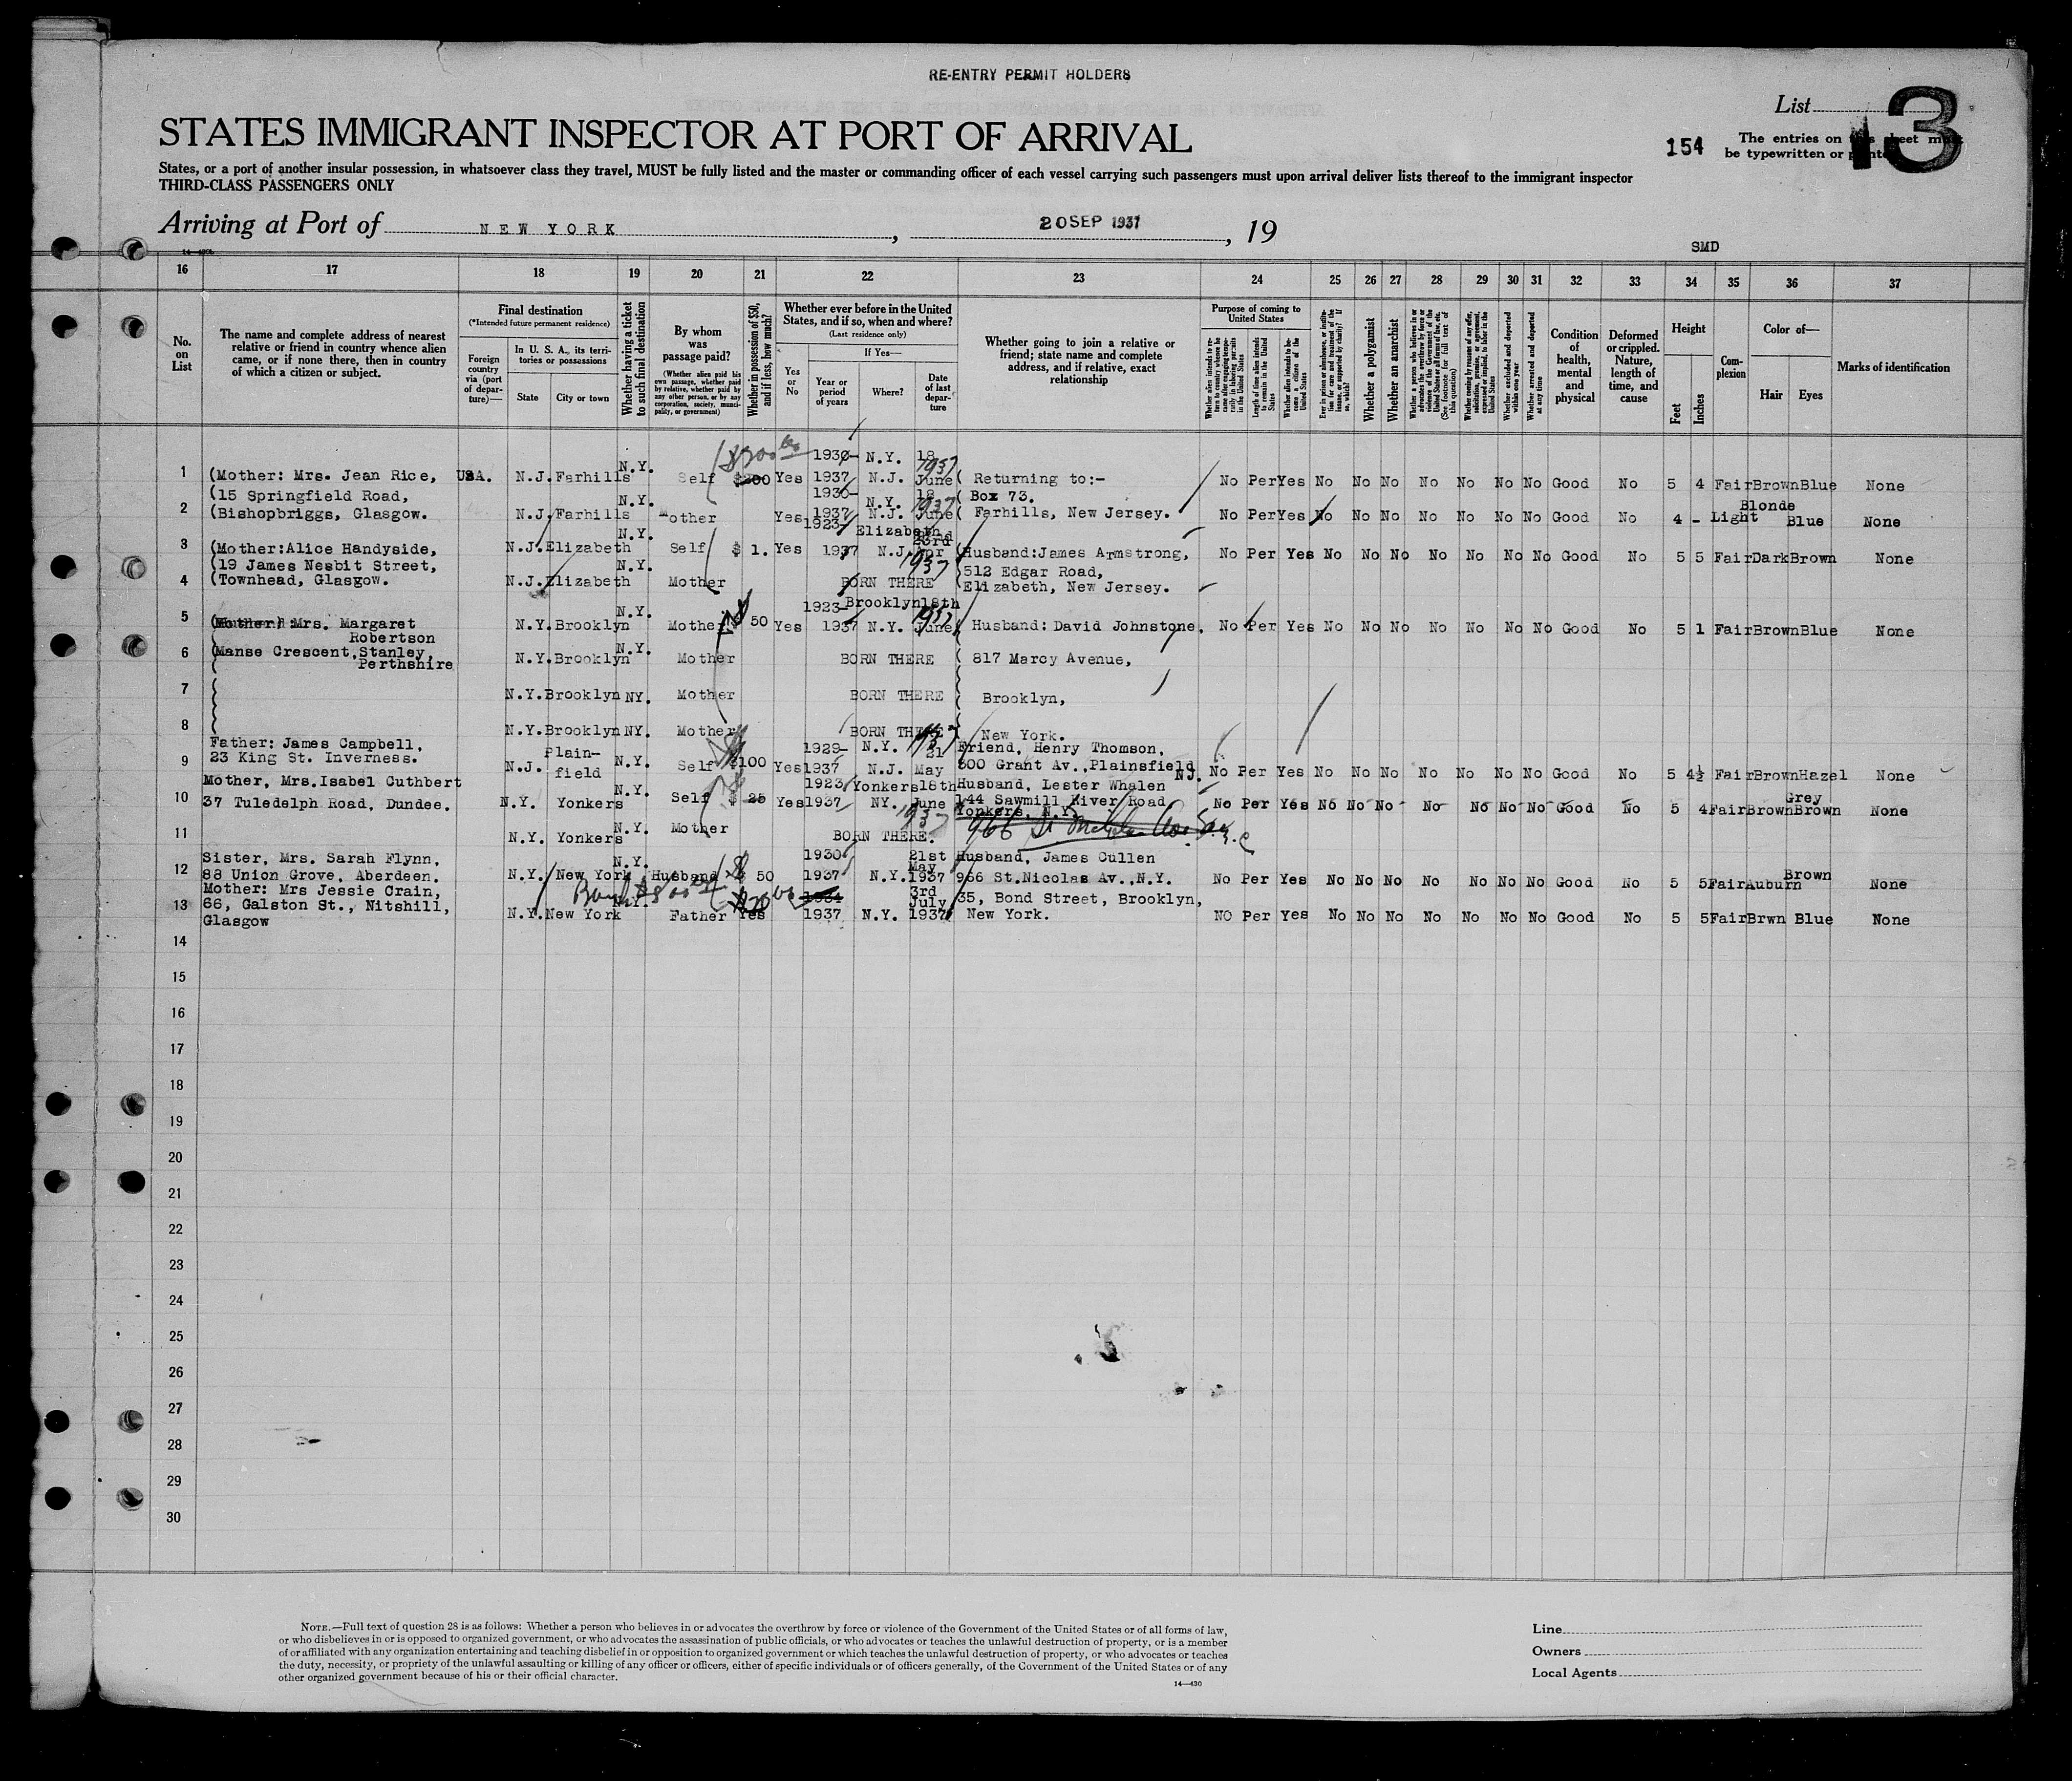 RE-ENTRY PERMIT HOLDERS
List
13
STATES IMMIGRANT INSPECTOR AT PORT OF ARRIVAL
154
The entries on this sheet must
be typewritten or printed
States, or a port of another insular possession, in whatsoever class they travel, MUST be fully listed and the master or commanding officer of each vessel carrying such passengers must upon arrival deliver lists thereof to the immigrant inspector
THIRD-CLASS PASSENGERS ONLY
Arriving at Port of NEW YORK, 20 SEP 1937, 19
SMD
16 17 18 19 20 21 22 23 24 25 26 27 28 29 30 31 32 33 34 35 36 37
No. on List
The name and complete address of nearest relative or friend in country whence alien came, or if none there, then in country of which a citizen or subject.
Final destination
(*Intended future permanent residence)
Foreign country via (port of departure)—
In U. S. A., its territories or possessions
State
City or town
Whether having a ticket to such final destination
By whom was passage paid?
(Whether alien paid his own passage, whether paid by relative, whether paid by any other person, or by any corporation, society, municipality, or government)
Whether in possession of $50, and if less, how much?
Whether ever before in the United States, and if so, when and where?
(Last residence only)
Yes or No
If Yes—
Year or period of years
Where?
Date of last departure
Whether going to join a relative or friend; state name and complete address, and if relative, exact relationship
Purpose of coming to United States
Length of time alien intends to remain in the United States
Whether alien intends to become a citizen of the United States
Whether a polygamist
Whether an anarchist
Whether excluded and deported within one year
Whether arrested and deported at any time
Condition of health, mental and physical
Deformed or crippled. Nature, length of time, and cause
Height
Feet
Inches
Complexion
Color of—
Hair
Eyes
Marks of identification
1 (Mother: Mrs. Jean Rice, USA. N.J. Farhills N.Y. Self $200 Yes 1930- 1937 N.Y. N.J. 18 June 1937 ( Returning to:- No Per Yes No No No No No No No Good No 5 4 Fair Brown Blue None
(15 Springfield Road, ( Box 73.
2 (Bishopbriggs, Glasgow. N.J. Farhills N.Y. Mother Yes 1930- 1937 N.Y. N.J. 18 June 1937 ( Farhills, New Jersey. No Per Yes No No No No No No No Good No 4 - Light Blonde Blue None
3 (Mother:Alice Handyside, N.J. Elizabeth N.Y. Self $ 1. Yes 1923- 1937 Elizabeth N.J. 23rd Apr 1937 (Husband:James Armstrong, No Per Yes No No No No No No No Good No 5 5 Fair Dark Brown None
(19 James Nesbit Street, (512 Edgar Road,
4 (Townhead, Glasgow. N.J. Elizabeth N.Y. Mother BORN THERE (Elizabeth, New Jersey.
5 (Mother: Mrs. Margaret N.Y. Brooklyn N.Y. Mother $ 50 Yes 1923- 1937 Brooklyn N.Y. 18th June 1937 ( Husband: David Johnstone, No Per Yes No No No No No No No Good No 5 1 Fair Brown Blue None
Robertson
6 (Manse Crescent,Stanley, N.Y. Brooklyn N.Y. Mother BORN THERE ( 817 Marcy Avenue,
( Perthshire
7 ( N.Y. Brooklyn NY. Mother BORN THERE ( Brooklyn,
8 ( N.Y. Brooklyn NY. Mother BORN THERE ( New York.
9 Father: James Campbell, N.J. Plain-field N.Y. Self $100 Yes 1929- 1937 N.Y. N.J. 21 May 1937 Friend, Henry Thomson, No Per Yes No No No No No No No Good No 5 4½ Fair Brown Hazel None
23 King St. Inverness. 300 Grant Av.,Plainsfield N.J.
10 Mother, Mrs.Isabel Cuthbert N.Y. Yonkers N.Y. Self $ 25 Yes 1923 1937 Yonkers NY. 18th June 1937 Husband, Lester Whalen No Per Yes No No No No No No No Good No 5 4 Fair Brown Grey Brown None
37 Tuledelph Road, Dundee. 144 Sawmill River Road
Yonkers, N.Y.
11 N.Y. Yonkers N.Y. Mother BORN THERE. 966 St Nicholas Ave
12 Sister, Mrs. Sarah Flynn, N.Y. New York N.Y. Husband $ 50 1930 1937 N.Y. 21st May 1937 Husband, James Cullen No Per Yes No No No No No No No Good No 5 5 Fair Auburn Brown None
88 Union Grove, Aberdeen. 966 St.Nicolas Av.,N.Y.
13 Mother: Mrs Jessie Crain, N.Y. New York N.Y. Father Yes 1937 N.Y. 3rd July 1937 35, Bond Street, Brooklyn, NO Per Yes No No No No No No No Good No 5 5 Fair Brwn Blue None
66, Galston St., Nitshill, New York.
Glasgow
14
15
16
17
18
19
20
21
22
23
24
25
26
27
28
29
30
NOTE.—Full text of question 28 is as follows: Whether a person who believes in or advocates the overthrow by force or violence of the Government of the United States or of all forms of law,
or who disbelieves in or is opposed to organized government, or who advocates the assassination of public officials, or who advocates or teaches the unlawful destruction of property, or is a member
of or affiliated with any organization entertaining and teaching disbelief in or opposition to organized government or which teaches the unlawful destruction of property, or who advocates or teaches
the duty, necessity, or propriety of the unlawful assaulting or killing of any officer or officers, either of specific individuals or of officers generally, of the Government of the United States or of any
other organized government because of his or their official character.
14—430
Line
Owners
Local Agents